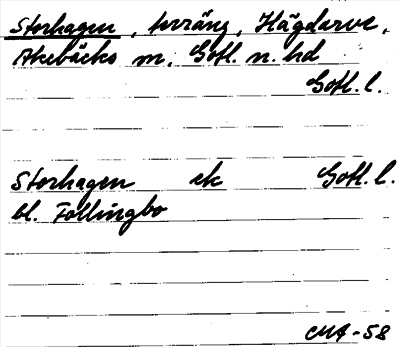 Storhagen, terräng, Hägdarve,
Akebäcks sn, Gotl. n. hd
Gotl. l.
Storhagen ek Gotl. l.
bl. Follingbo
CMA-58